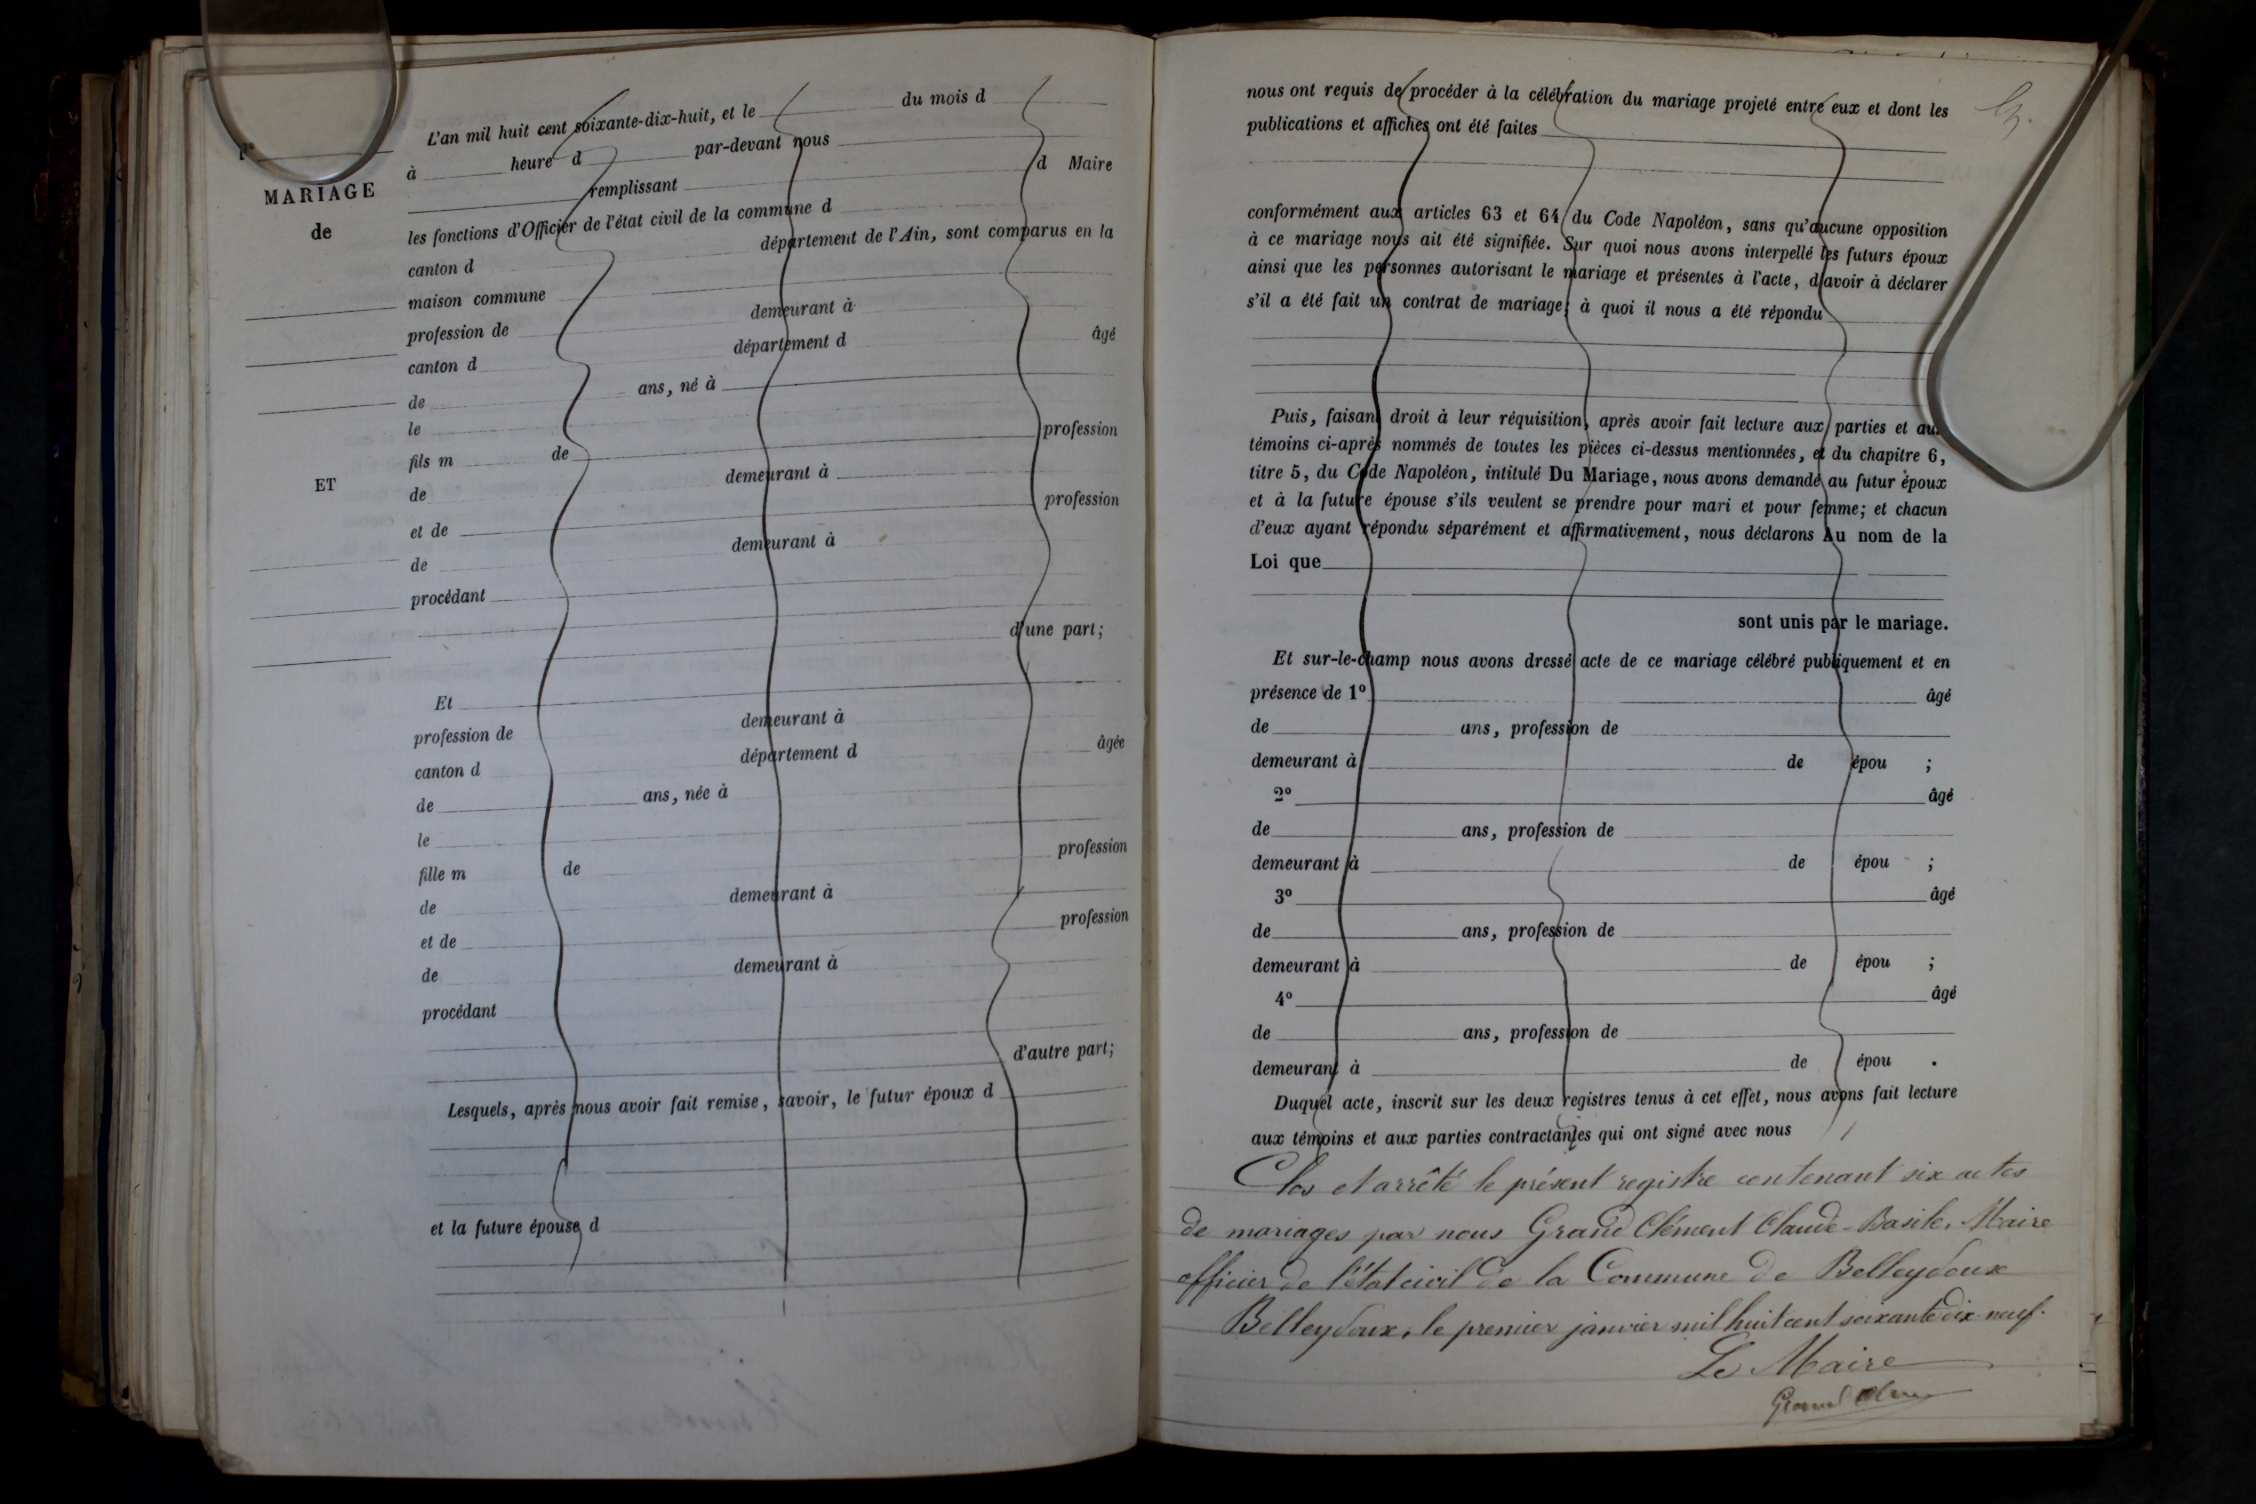 L'an mil huit cent soixante-dix-huit, et le du mois d
à heure d par-devant nous
remplissant d Maire
les fonctions d'Officier de l'état civil de la commune d
canton d département de l'Ain, sont comparus en la
maison commune
profession de demeurant à
canton d département d âgé
de ans, né à
le
fils m de profession
de demeurant à
et de profession
de demeurant à
procédant
d'une part;
Et
profession de demeurant à
canton d département d âgée
de ans, née à
le
fille m de profession
de demeurant à
et de profession
de demeurant à
procédant
d'autre part;
Lesquels, après nous avoir fait remise, savoir, le futur époux d
et la future épouse d
MARIAGE
de
ET
nous ont requis de procéder à la célébration du mariage projeté entre eux et dont les
publications et affiches ont été faites
conformément aux articles 63 et 64 du Code Napoléon, sans qu'aucune opposition
à ce mariage nous ait été signifiée. Sur quoi nous avons interpellé les futurs époux
ainsi que les personnes autorisant le mariage et présentes à l'acte, d'avoir à déclarer
s'il a été fait un contrat de mariage; à quoi il nous a été répondu
Puis, faisant droit à leur réquisition, après avoir fait lecture aux parties et aux
témoins ci-après nommés de toutes les pièces ci-dessus mentionnées, et du chapitre 6,
titre 5, du Code Napoléon, intitulé Du Mariage, nous avons demandé au futur époux
et à la future épouse s'ils veulent se prendre pour mari et pour femme; et chacun
d'eux ayant répondu séparément et affirmativement, nous déclarons Au nom de la
Loi que
sont unis par le mariage.
Et sur-le-champ nous avons dressé acte de ce mariage célébré publiquement et en
présence de 1º âgé
de ans, profession de
demeurant à de épou ;
2º âgé
de ans, profession de
demeurant à de épou ;
3º âgé
de ans, profession de
demeurant à de épou ;
4º âgé
de ans, profession de
demeurant à de épou .
Duquel acte, inscrit sur les deux registres tenus à cet effet, nous avons fait lecture
aux témoins et aux parties contractantes qui ont signé avec nous
Clos et arrêté le présent registre contenant six actes
de mariages par nous Grand Clément Claude-Basile, Maire
officier de l'état civil de la Commune de Belleydoux
Belleydoux, le premier janvier mil huit cent soixante dix-neuf.
Le Maire
Grand Clém